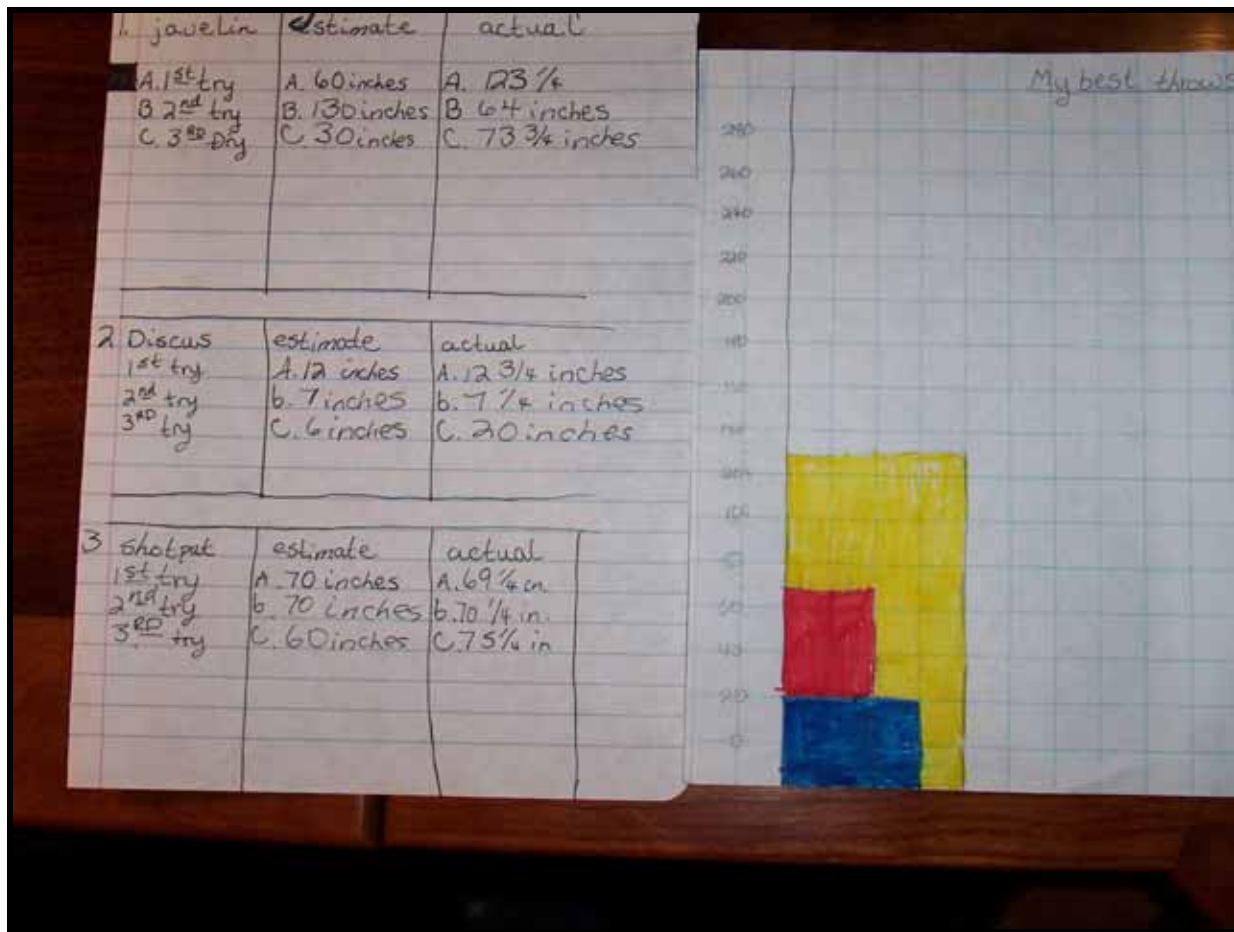 1. javelin estimate actual
A. 1st try A. 60 inches A. 123 1/4
B 2nd try B. 130 inches B 64 inches
C. 3RD try C. 30 inches C. 73 3/4 inches
2 Discus estimate actual
1st try A. 12 inches A. 12 3/4 inches
2nd try b. 7 inches b. 7 1/4 inches
3RD try C. 6 inches C. 20 inches
3 Shotput estimate actual
1st try A. 70 inches A. 69 1/4 in.
2nd try b. 70 inches b. 70 1/4 in.
3.RD try C. 60 inches C. 75 1/4 in
My best throws
280
260
240
220
200
100
60
40
20
0